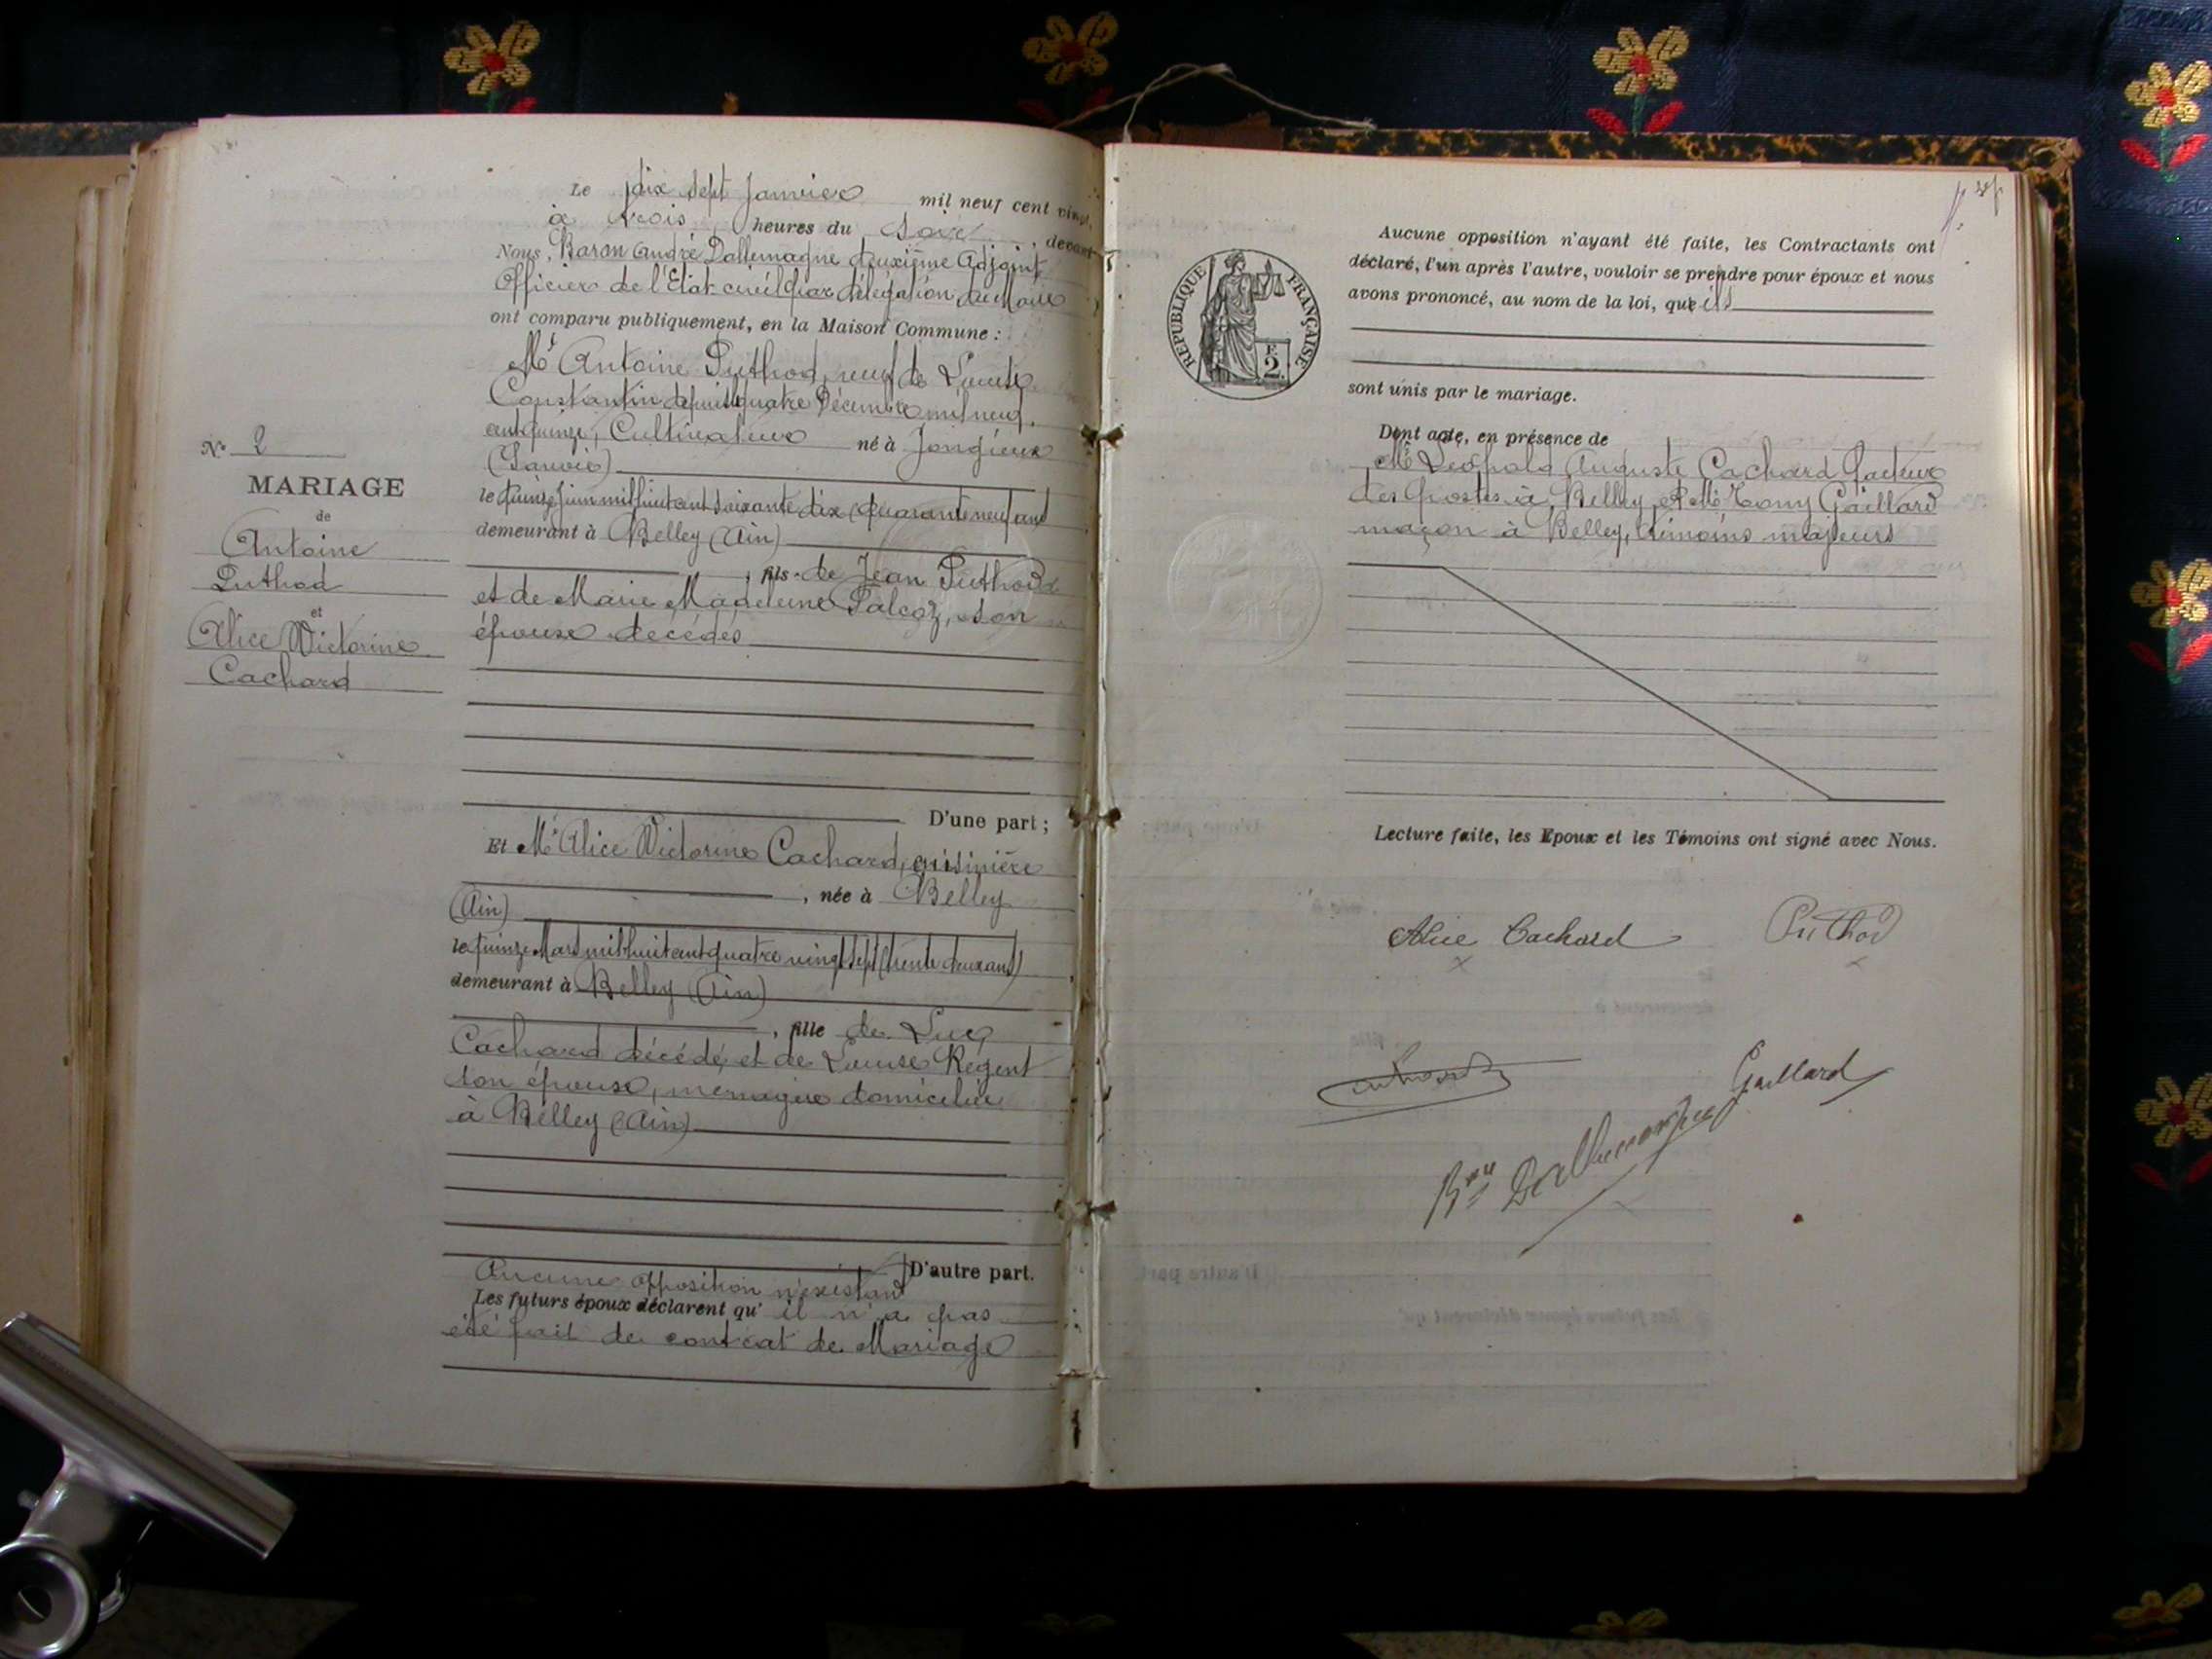 Le dix sept Janvier mil neuf cent vingt,
à trois heures du soir, devant
Nous, Baron André Dallemagne deuxième Adjoint
Officier de l'Etat civil par délégation du Maire
ont comparu publiquement, en la Maison Commune :
Mr Antoine Puthod, veuf de Louise
Constantin depuis le quatre Décembre mil neuf
cent quinze, Cultivateur né à Jongieux
(Savoie)
le quinze Juin mil huit cent soixante dix (quarante neuf ans
demeurant à Belley (Ain)
, fils de Jean Puthod
et de Marie Madeleine Palcoz, son
épouse décédés
D'une part ;
N° 2
MARIAGE
de
Antoine
Puthod
et
Alice Victorine
Cachard
Et Me Alice Victorine Cachard, cuisinière
, née à Belley
(Ain)
le quinze Mars mil huit cent quatre vingt sept (trente deux ans)
demeurant à Belley (Ain)
, fille de Luc
Cachard décédé, et de Louise Régent
son épouse, ménagère domiciliée
à Belley (Ain)
D'autre part.
Aucune opposition n'existant
Les futurs époux déclarent qu' il n'a pas
été fait de contrat de Mariage
REPUBLIQUE FRANÇAISE
F.
2.
Aucune opposition n'ayant été faite, les Contractants ont
déclaré, l'un après l'autre, vouloir se prendre pour époux et nous
avons prononcé, au nom de la loi, que ils
sont unis par le mariage.
Dont acte, en présence de
Mr Léopold Auguste Cachard facteur
des postes à Belley, et Mr Tony Gaillard
maçon à Belley, témoins majeurs
Lecture faite, les Epoux et les Témoins ont signé avec Nous.
Alice Cachard Puthod
Gaillard
Bon Dallemagne